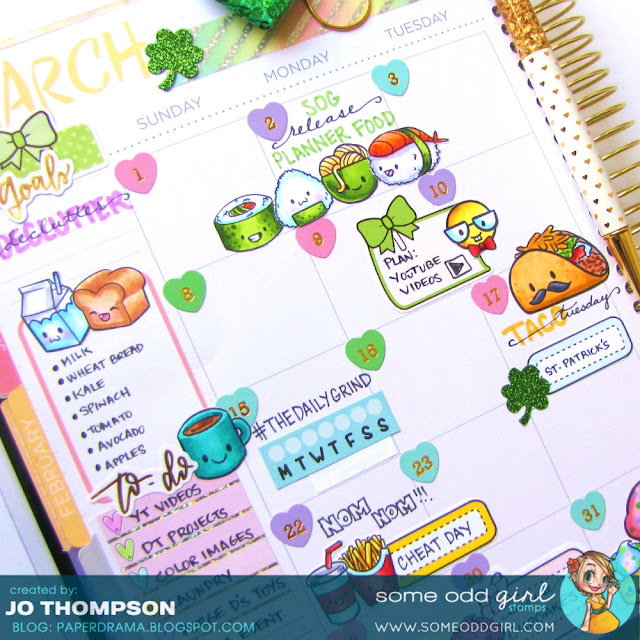 ARCH
SUNDAY
MONDAY
TUESDAY
Goals
DECLUTTER
declutter
1
2
3
SOG
release
PLANNER FOOD
8
9
10
PLAN:
YOUTUBE
VIDEOS
17
TACO tuesday
ST. PATRICK'S
• MILK
• WHEAT BREAD
• KALE
• SPINACH
• TOMATO
• AVOCADO
• APPLES
FEBRUARY
15
16
#THEDAILYGRIND
M T W T F S S
to-do
YT VIDEOS
DT PROJECTS
COLOR IMAGES
LAUNDRY
D'S TOYS
22
23
NOM NOM!!!
CHEAT DAY
31
created by:
JO THOMPSON
BLOG: PAPERDRAMA.BLOGSPOT.COM
some odd girl
stamps
WWW.SOMEODDGIRL.COM